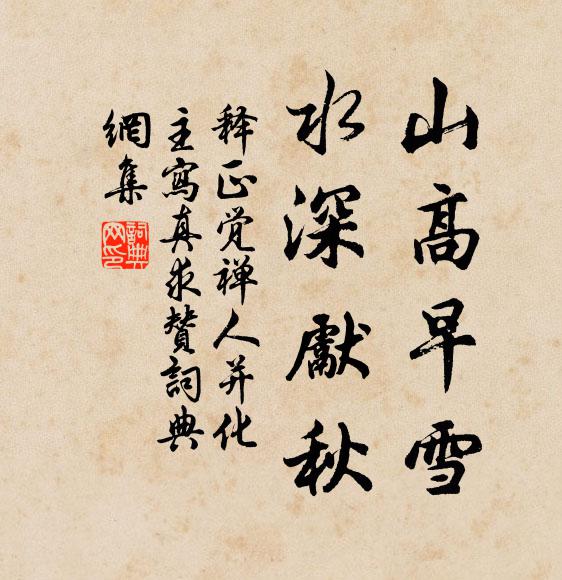 山高早雪
水深獻秋
释正觉禅人并化
主寫真求贊詞典
網集
詞典
网印